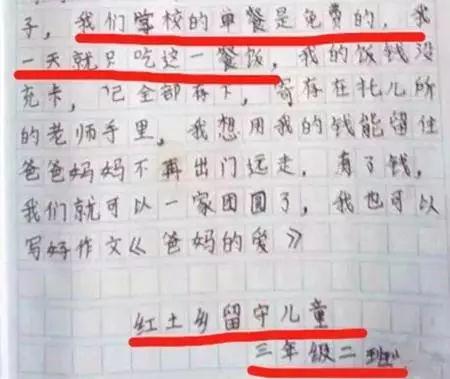 子，我们学校的单餐是免费的，我
一天就只吃这一餐饭，我的饭钱没
充卡，己全部存下，寄存在托儿所
的老师手里，我想用我的钱能留住
爸爸妈妈不再出门远走，有了钱，
我们就可以一家团圆了，我也可以
写好作文《爸妈的爱》
红土乡留守儿童
三年级二班